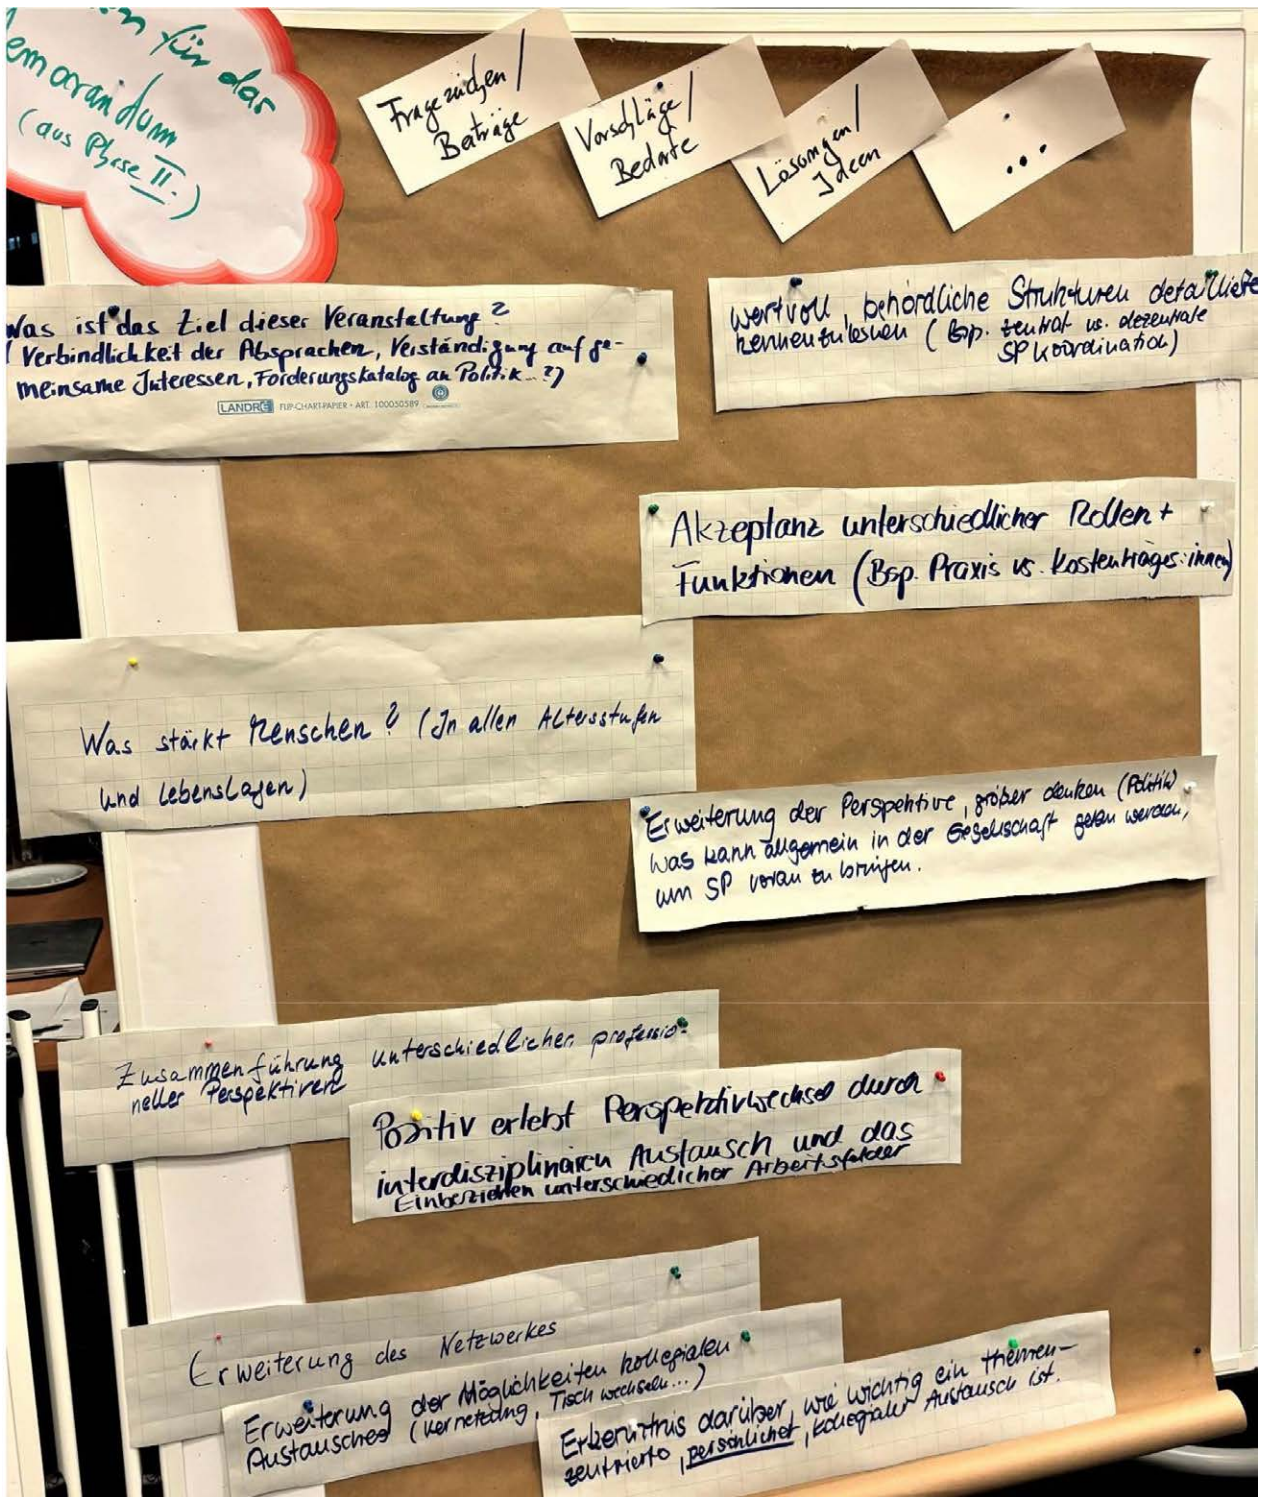 für das
emorandum
(aus Phase II.)
Fragezeichen /
Beiträge
Vorschläge /
Bedarfe
Lösungen /
Ideen
...
Was ist das Ziel dieser Veranstaltung?
(Verbindlichkeit der Absprachen, Verständigung auf ge-
meinsame Interessen, Forderungskatalog an Politik...?)
LANDRÉ FLIP-CHART-PAPIER • ART. 100050589
wertvoll, behördliche Strukturen detaillierte
kennenzulernen (Bsp. zentral vs. dezentrale
SP Koordination)
Akzeptanz unterschiedlicher Rollen +
Funktionen (Bsp. Praxis vs. Kostenträger:innen)
Was stärkt Menschen? (In allen Altersstufen
und Lebenslagen)
Erweiterung der Perspektive, größer denken (Politik)
Was kann allgemein in der Gesellschaft getan werden,
um SP voran zu bringen.
Zusammenführung unterschiedlicher professio-
neller Perspektiven
Positiv erlebt Perspektivwechsel durch
interdisziplinären Austausch und das
Einbeziehen unterschiedlicher Arbeitsfelder
Erweiterung des Netzwerkes
Erweiterung der Möglichkeiten kollegialen
Austausches (Vernetzung, Tisch wechseln...)
Erkenntnis darüber, wie wichtig ein themen-
zentrierte, persönlicher, kollegialer Austausch ist.